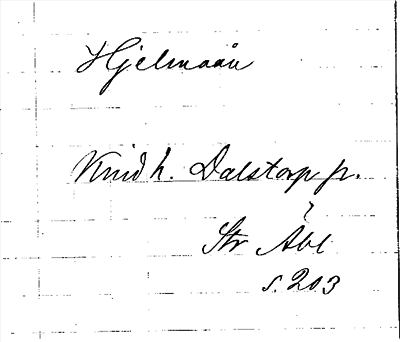 Hjelmaån
Kind h. Dalstorp p.
Str Åbl
s. 203